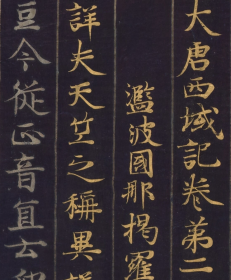 大唐西域記卷第二
濫波國那揭羅
詳夫天竺之稱異
豆今從正音宜云